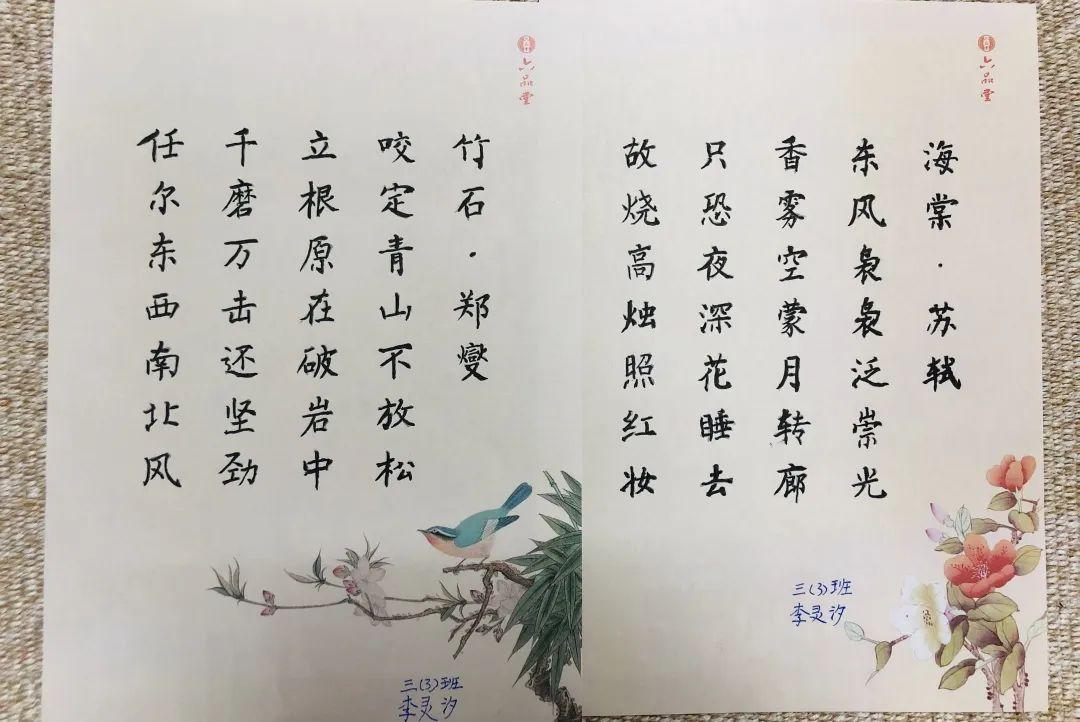 海棠·苏轼
东风袅袅泛崇光
香雾空蒙月转廊
只恐夜深花睡去
故烧高烛照红妆
三(3)班
李灵汐
六品堂
竹石·郑燮
咬定青山不放松
立根原在破岩中
千磨万击还坚劲
任尔东西南北风
三(3)班
李灵汐
六品堂